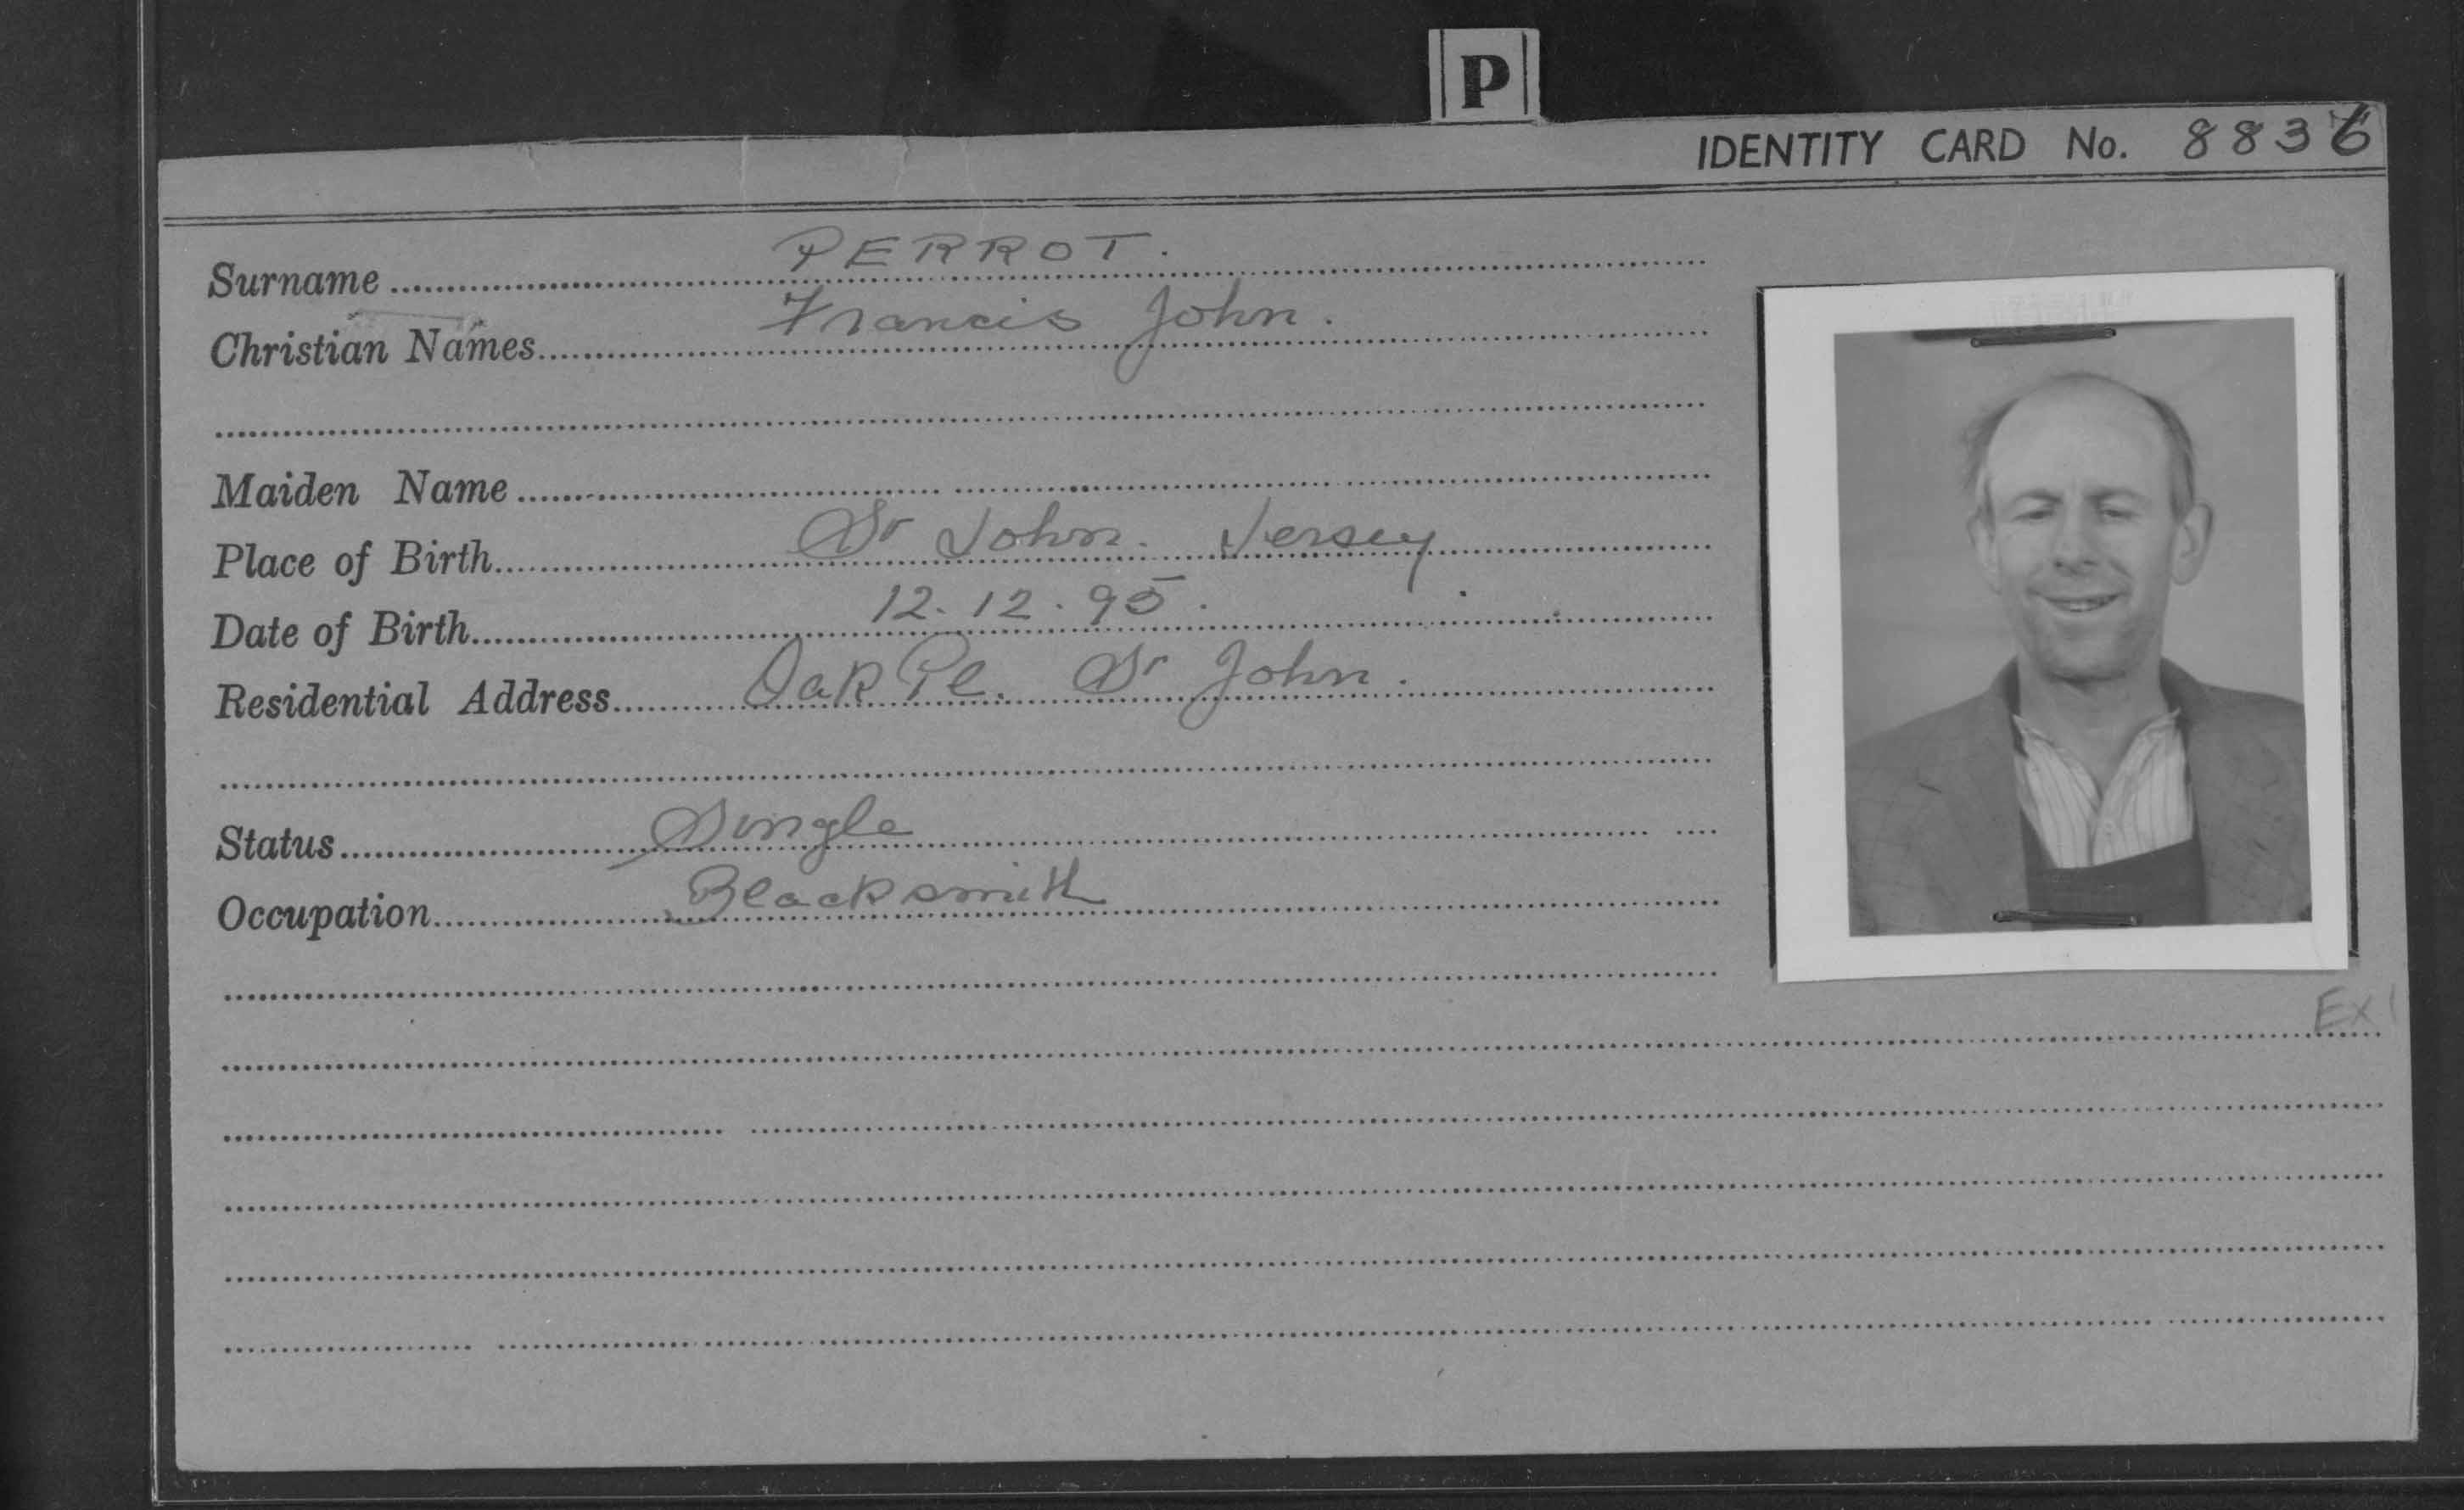 P
IDENTITY CARD No. 8836
Surname PERROT.
Christian Names Francis John.
Maiden Name
Place of Birth St John. Jersey
Date of Birth 12.12.95.
Residential Address Oak Pl. St John.
Status Single
Occupation Blacksmith
Ex